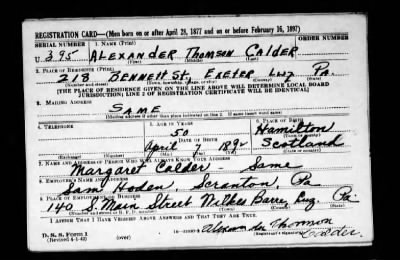 REGISTRATION CARD—(Men born on or after April 28, 1877 and on or before February 16, 1897)
SERIAL NUMBER 1. NAME (Print)
U 395 ALEXANDER THOMSON CALDER
(First) (Middle) (Last)
2. PLACE OF RESIDENCE (Print)
218 BENNETT ST, EXETER LUZ PA.
(Number and street) (Town, township, village, or city) (County) (State)
[THE PLACE OF RESIDENCE GIVEN ON THE LINE ABOVE WILL DETERMINE LOCAL BOARD
JURISDICTION; LINE 2 OF REGISTRATION CERTIFICATE WILL BE IDENTICAL]
3. MAILING ADDRESS
SAME
[Mailing address if other than place indicated on line 2. If same insert word same]
4. TELEPHONE 5. AGE IN YEARS 6. PLACE OF BIRTH
50 Hamilton
DATE OF BIRTH (Town or county)
April 7 1892 Scotland
(Exchange) (Number) (Mo.) (Day) (Yr.) (State or country)
7. NAME AND ADDRESS OF PERSON WHO WILL ALWAYS KNOW YOUR ADDRESS
Margaret Calder - Same
8. EMPLOYER'S NAME AND ADDRESS
Sam Hoden, Scranton, Pa
9. PLACE OF EMPLOYMENT OR BUSINESS
140 S. Main Street Wilkes Barre, Luz. Pa
(Number and street or R. F. D. number) (Town) (County) (State)
I AFFIRM THAT I HAVE VERIFIED ABOVE ANSWERS AND THAT THEY ARE TRUE.
D. S. S. Form 1
(Revised 4-1-42) (over)
Alexander Thomson
Calder
(Registrant's signature)